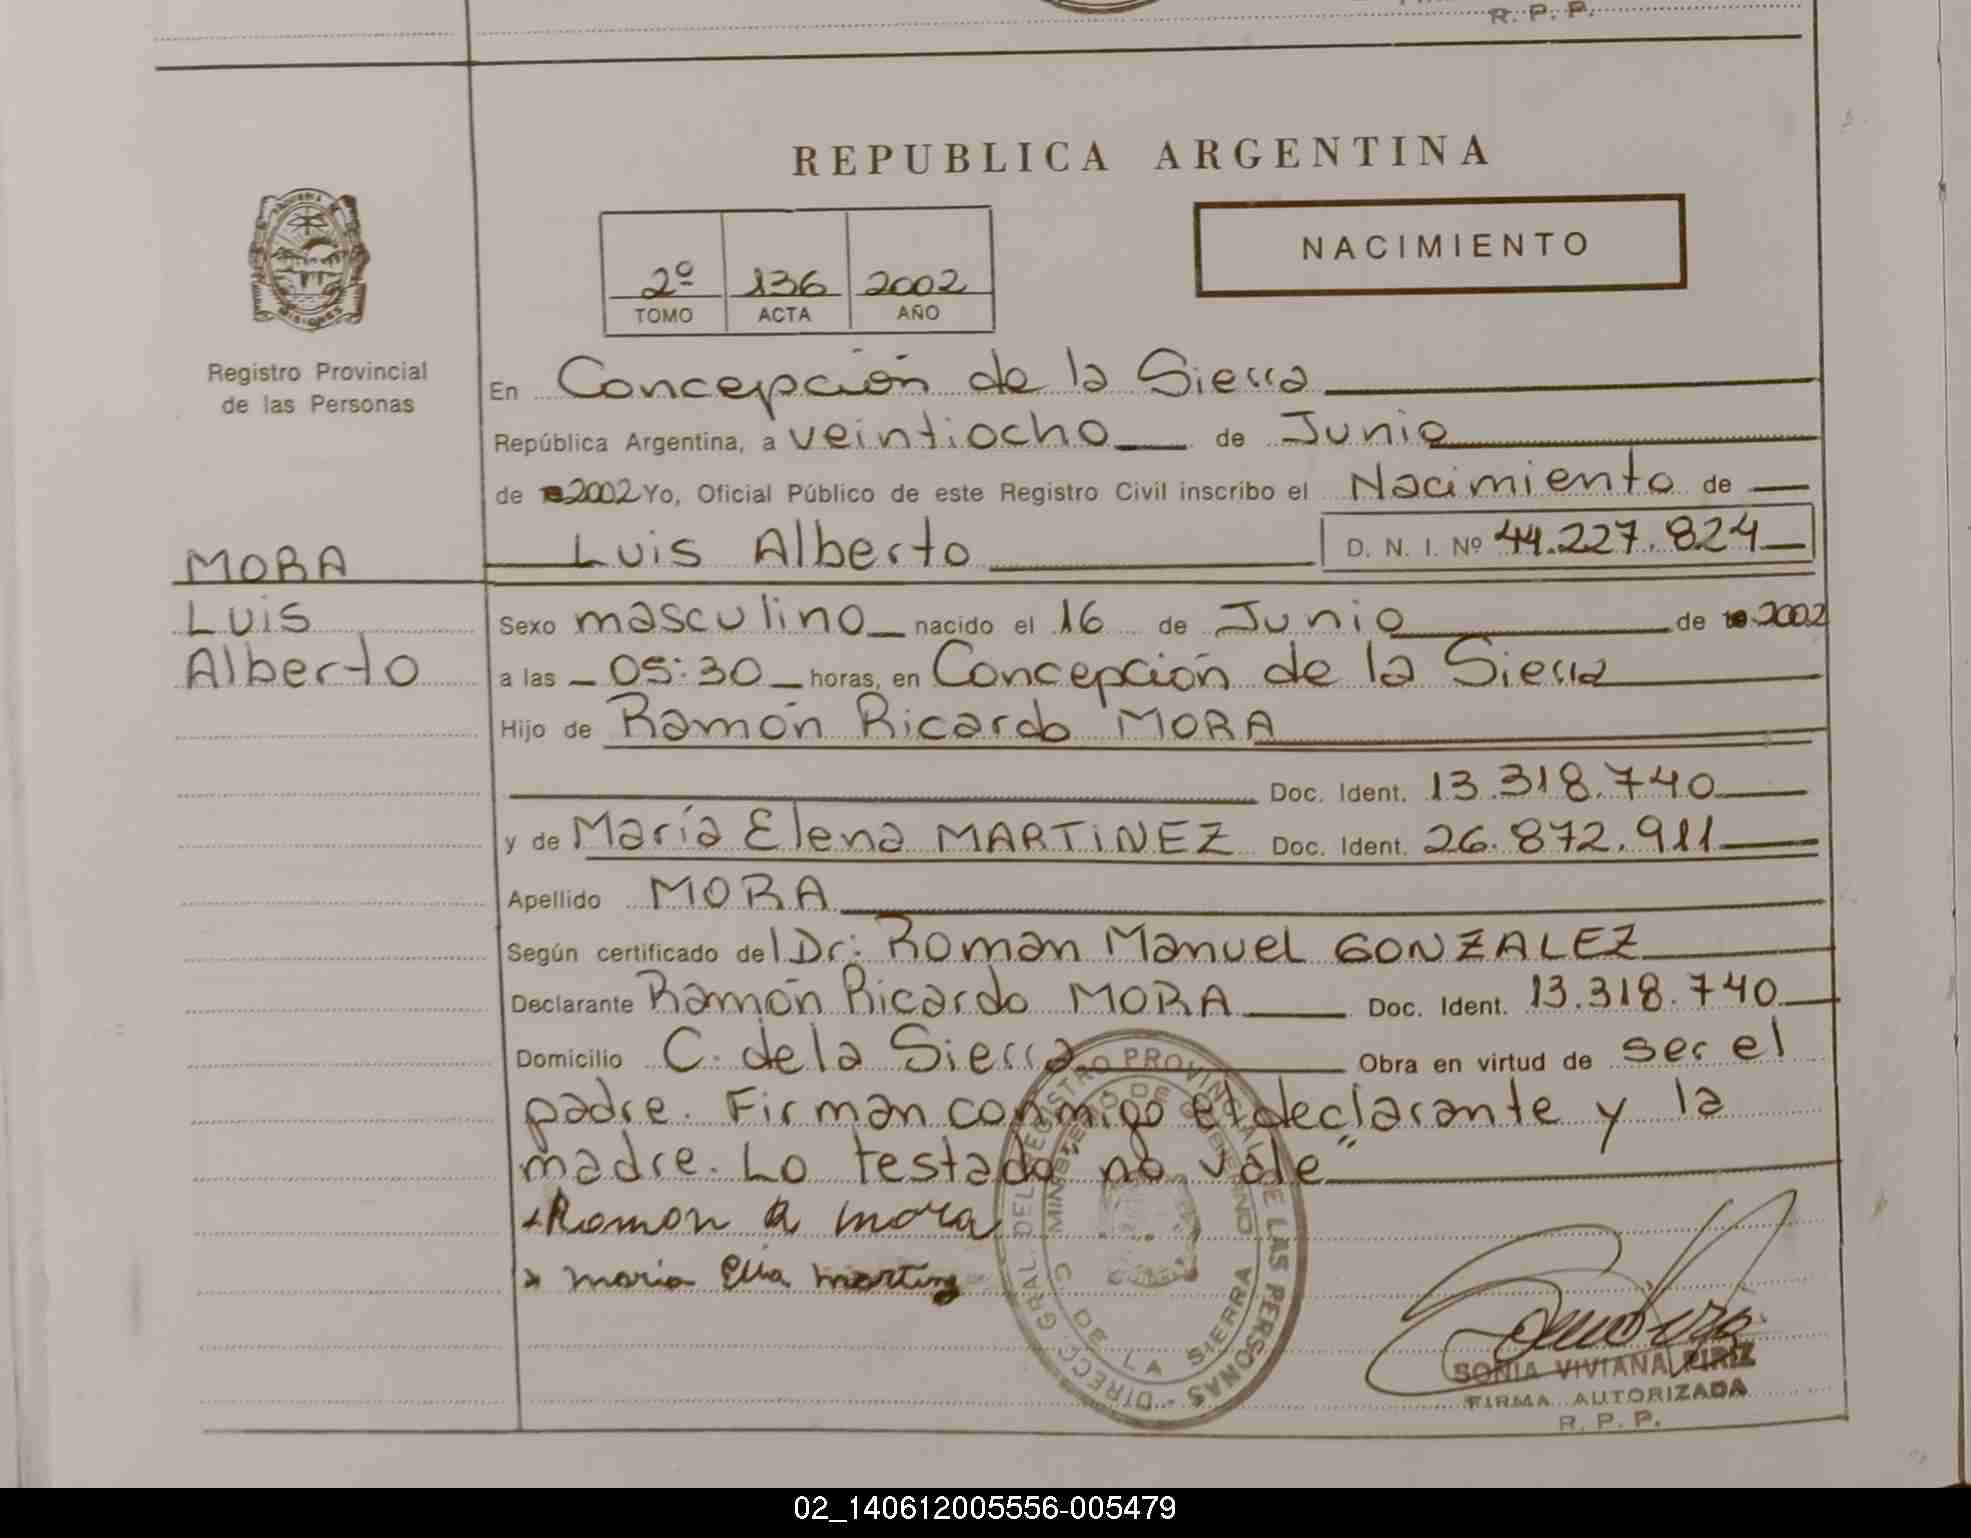 R. P. P.
REPUBLICA ARGENTINA
NACIMIENTO
2º 136 2002
TOMO ACTA AÑO
Registro Provincial
de las Personas
En Concepción de la Sierra
República Argentina, a veintiocho de Junio
de 2002 Yo, Oficial Público de este Registro Civil inscribo el Nacimiento de
Luis Alberto D. N. I. Nº 44.227.824
MORA
Luis
Alberto
Sexo masculino nacido el 16 de Junio de 2002
a las 05:30 horas, en Concepción de la Sierra
Hijo de Ramón Ricardo MORA
Doc. Ident. 13.318.740
y de María Elena MARTINEZ Doc. Ident. 26.872.911
Apellido MORA
Según certificado del Dr: Roman Manuel GONZALEZ
Declarante Ramón Ricardo MORA Doc. Ident. 13.318.740
Domicilio C. de la Sierra Obra en virtud de ser el
padre. Firman conmigo el declarante y la
madre. Lo testado "no vale"
Ramon R mora
maria
DIRECC. GRAL. DEL REGISTRO PROVINCIAL DE LAS PERSONAS
MINISTERIO DE GOBIERNO
C DE LA SIERRA
SONIA VIVIANA PIRIZ
FIRMA AUTORIZADA
R. P. P.
02_140612005556-005479